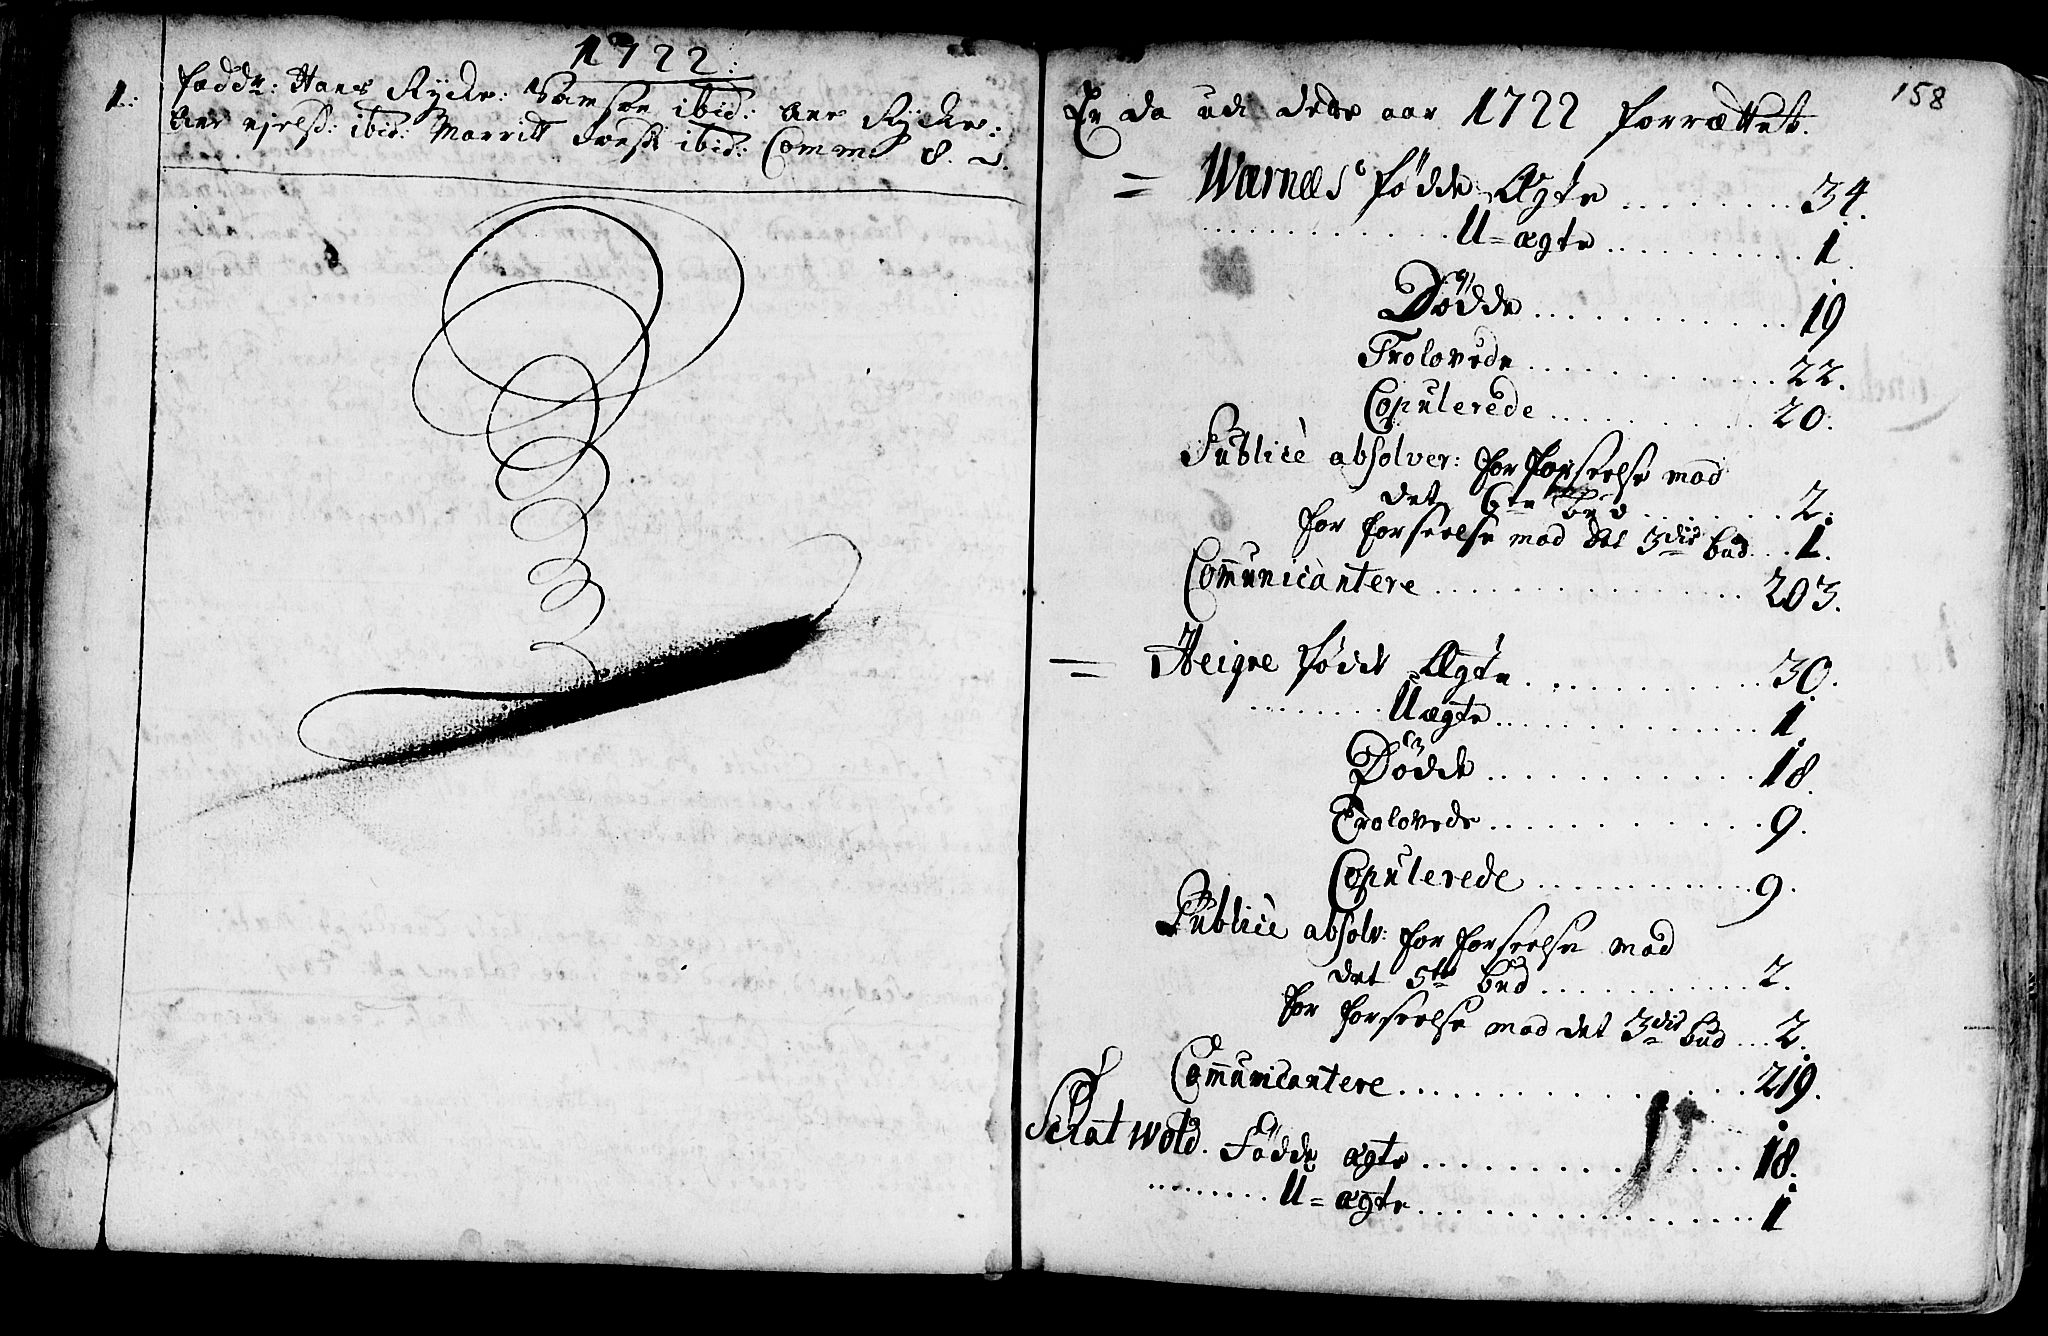 1722.
1.: fadd: Hans Rÿcke: Samson ibid: Ane Rÿcke:
Ane Njelsd: ibid: Marritt ibid: Comm: 8.
158
Er da udi dette aar 1722 forrættet.
= Wærnes fødde Ægte ......... 34.
............. U=ægte .......... 1.
Dødde ............. 19
Trolovede ............. 22.
Copulerede ........... 20.
Publicè absolver: for forseelse mod
det 6te bud ....... 2.
for forseelse mod det 3die bud ... 1.
Com̅unicantere ................ 203.
= Heigre fødde Ægte ............ 30.
......... Uægte ............. 1.
Dødde .............. 18.
Trolovede .............. 9.
Copulerede ............ 9.
Publicè absolv: for forseelse mod
det 5te bud ........... 2.
for forseelse mod det 3die bud ... 2.
Com̅unicantere .................. 219.
Schatwold. Fødde ægte ................. 18.
......... U=ægte .................. 1